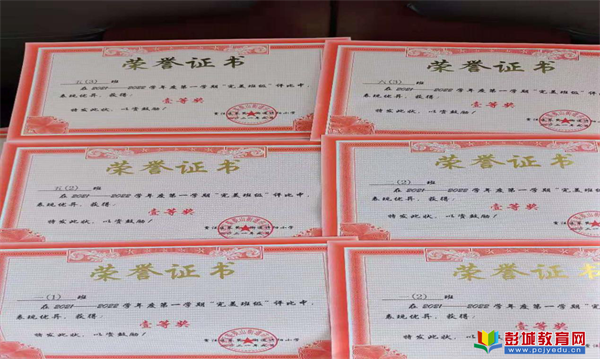 荣誉证书
五(3) 班
在2021——2022学年度第一学期"完美班级"评比中,
表现优异,获得:
壹等奖
特发此状,以资鼓励!
荣誉证书
六(3) 班
在2021——2022学年度第一学期"完美班级"评比中,
表现优异,获得:
壹等奖
特发此状,以资鼓励!
荣誉证书
五(2) 班
在2021——2022学年度第一学期"完美班级"评比中,
表现优异,获得:
壹等奖
特发此状,以资鼓励!
荣誉证书
(2) 班
在2021——2022学年度第一学期"完美班级"
表现优异,获得:
壹等奖
特发此状,以资鼓励!
荣誉证书
一(1) 班
在2021——2022学年度第一学期"完美班级"评比中,
表现优异,获得:
壹等奖
特发此状,以资鼓励!
荣誉证
六(2) 班
在2021——2022学年度第一学期"完
表现优异,获得:
壹等奖
特发此状,以资鼓励!
彭城教育网
www.pcjyedu.cn